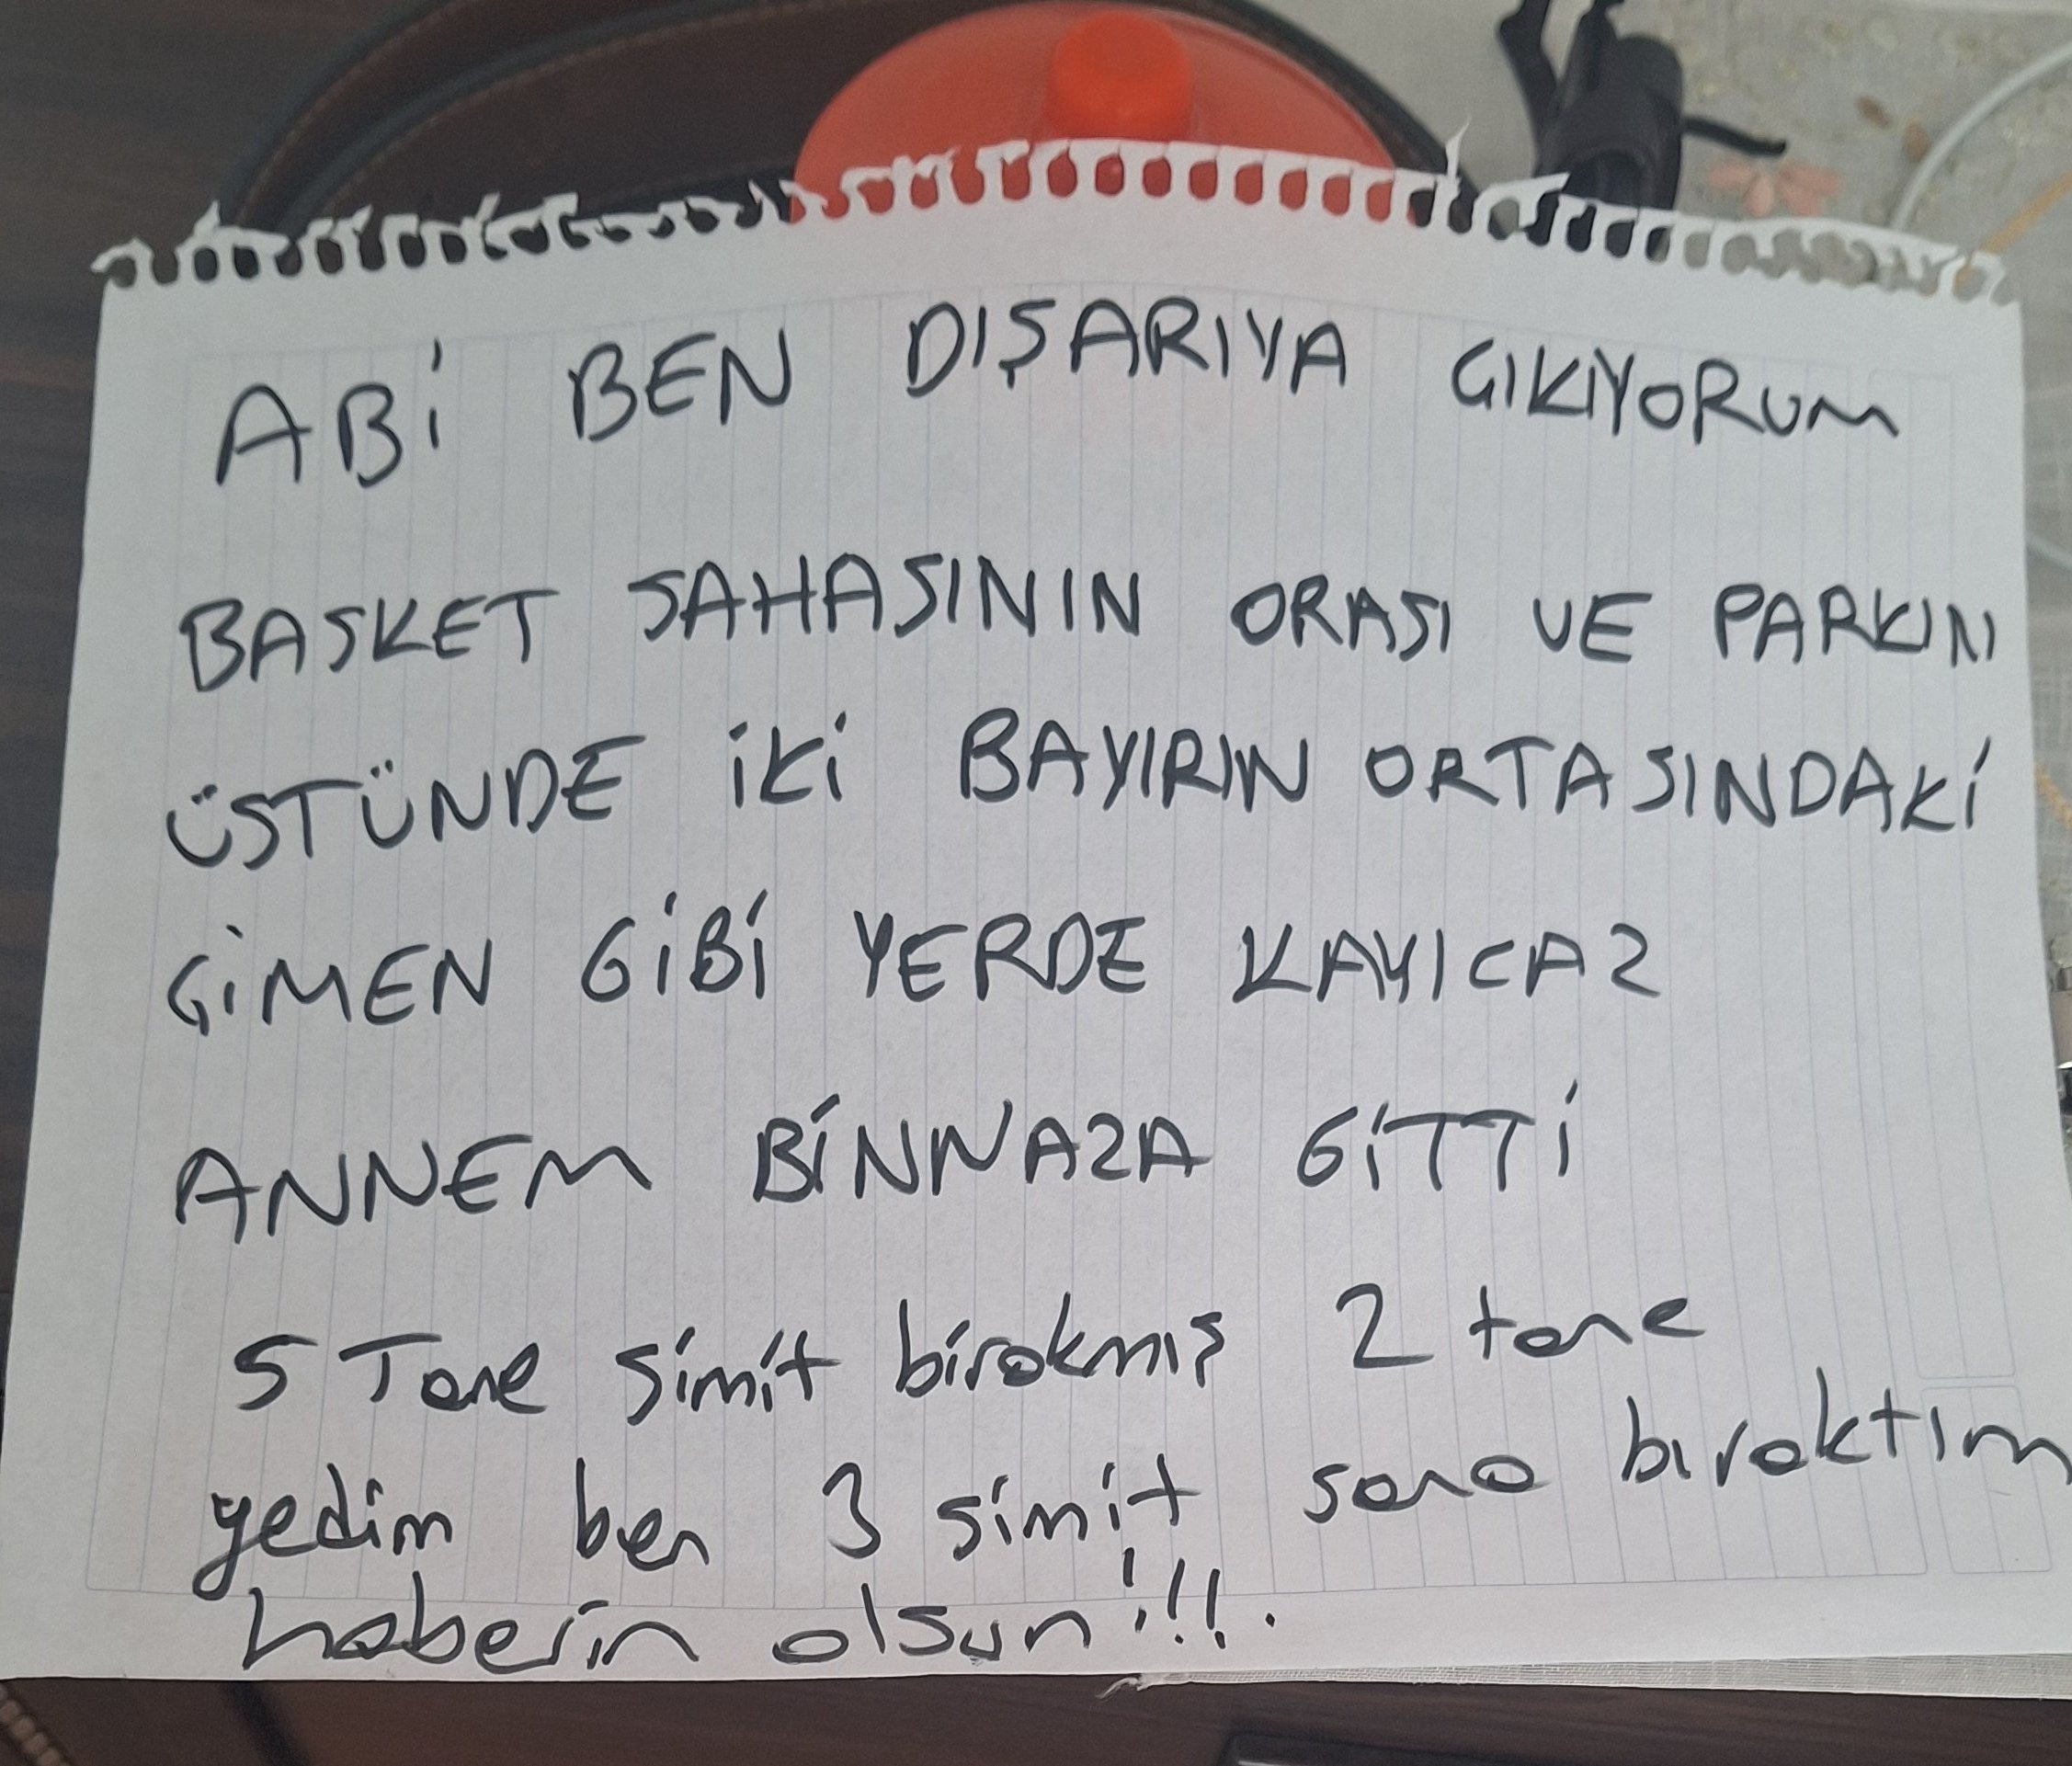 ABİ BEN DIŞARIYA ÇIKIYORUM
BASKET SAHASININ ORASI VE PARKIN
ÜSTÜNDE İKİ BAYIRIN ORTASINDAKİ
ÇİMEN GİBİ YERDE KAYICAZ
ANNEM BİNNAZA GİTTİ
5 Tane simit birakmış 2 tane
yedim ben 3 simit sana bıraktım
haberin olsun!!!.